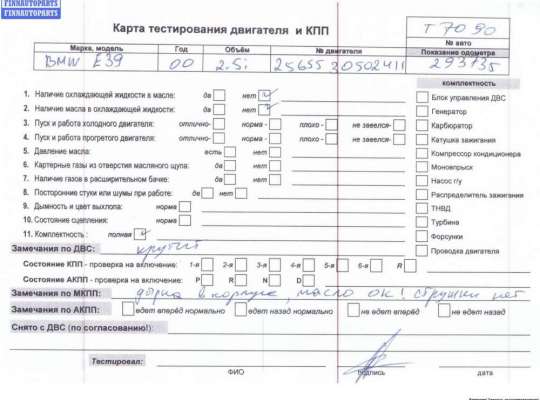 FINNAUTOPARTS
FINNAUTOPARTS
Карта тестирования двигателя и КПП
T 7090
№ авто
Марка, модель Год Объём № двигателя Показание одометра
BMW E39 00 2.5i 25655 30502411 293735
комплектность
1. Наличие охлаждающей жидкости в масле: да нет
2. Наличие масла в охлаждающей жидкости: да нет
3. Пуск и работа холодного двигателя: отлично- норма - плохо - не завелся-
4. Пуск и работа прогретого двигателя: отлично- норма - плохо - не завелся-
5. Давление масла: есть нет
6. Картерные газы из отверстия масляного щупа: да нет
7. Наличие газов в расширительном бачке: да нет
8. Посторонние стуки или шумы при работе: да нет
9. Дымность и цвет выхлопа: норма
10. Состояние сцепления: норма
11. Комплектность : полная
Блок управления ДВС
Генератор
Карбюратор
Катушка зажигания
Компрессор кондиционера
Моновпрыск
Насос г/у
Распределитель зажигания
ТНВД
Турбина
Форсунки
Проводка двигателя
Замечания по ДВС: крутит
Состояние КПП - проверка на включение: 1-я 2-я 3-я 4-я 5-я 6-я R
Состояние АКПП - проверка на включение: P R N D
Замечания по МКПП: дырка в корпусе, масло ок! стружки нет
Замечания по АКПП: едет вперёд нормально едет назад нормально не едет вперёд не едет назад
Снято с ДВС (по согласованию!):
Тестировал:
ФИО подпись дата